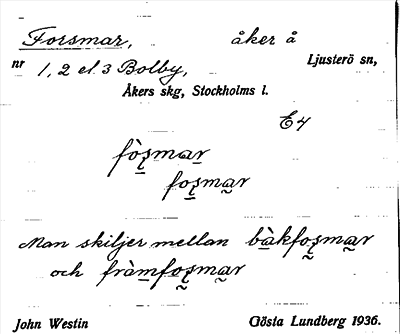 Forsmar, åker å
nr 1, 2 el. 3 Bolby, Ljusterö sn,
Åkers skg, Stockholms l.
E4
fò̱ʂmar̲
fo̲ʂma̰r
Man skiljer mellan bàkfo̲ʂma̰r
och fràm̲fo̲ʂma̰r
John Westin Gösta Lundberg 1936.